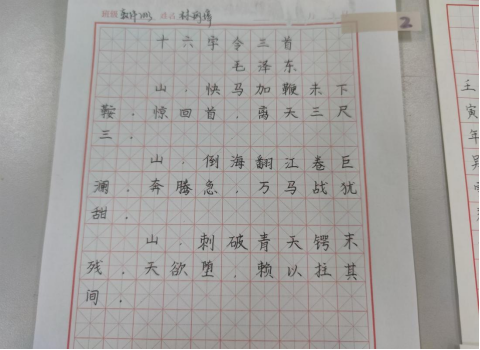 班级 姓名
2
十六字令三首
毛泽东
山,快马加鞭未下
鞍,惊回首,离天三尺
三.
山,倒海翻江卷巨
澜,奔腾急,万马战犹
甜.
山,刺破青天锷未
残,天欲堕,赖以拄其
间.
王
寅
年